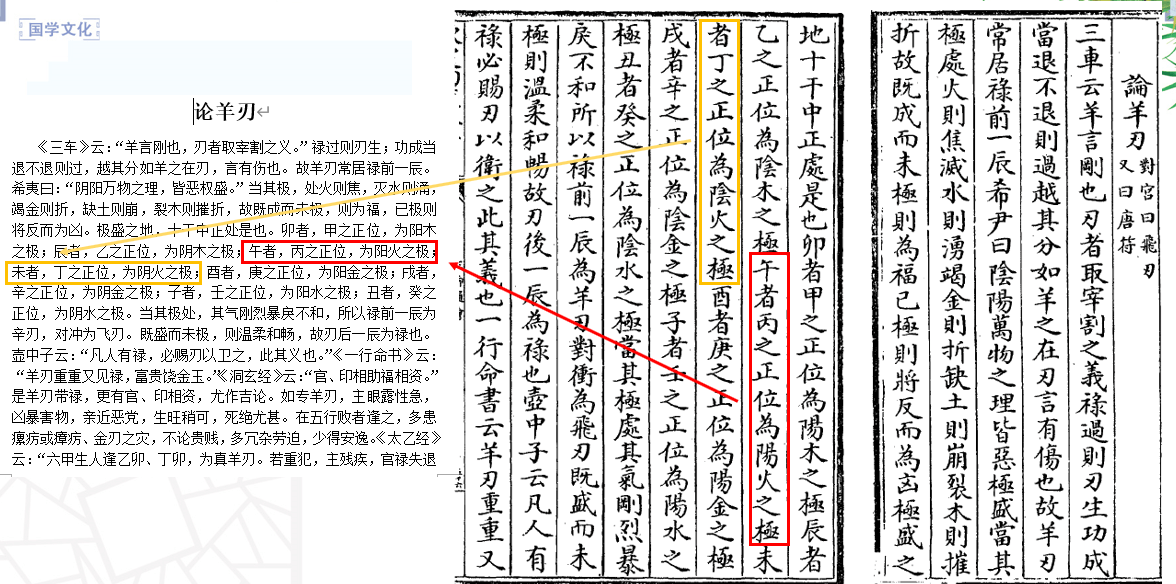 国学文化
论羊刃
《三车》云：“羊言刚也，刃者取宰割之义。”禄过则刃生；功成当
退不退则过，越其分如羊之在刃，言有伤也。故羊刃常居禄前一辰。
希夷曰：“阴阳万物之理，皆恶权盛。”当其极，处火则焦，灭水则涌，
竭金则折，缺土则崩，裂木则摧折，故既成而未极，则为福，已极则
将反而为凶。极盛之地，十干中正处是也。卯者，甲之正位，为阳木
之极；辰者，乙之正位，为阴木之极；午者，丙之正位，为阳火之极；
未者，丁之正位，为阴火之极；酉者，庚之正位，为阳金之极；戌者，
辛之正位，为阴金之极；子者，壬之正位，为阳水之极；丑者，癸之
正位，为阴水之极。当其极处，其气刚烈暴戾不和，所以禄前一辰为
辛刃，对冲为飞刃。既盛而未极，则温柔和畅，故刃后一辰为禄也。
壶中子云：“凡人有禄，必赐刃以卫之，此其义也。”《一行命书》云：
“羊刃重重又见禄，富贵饶金玉。”《洞玄经》云：“官、印相助福相资。”
是羊刃带禄，更有官、印相资，尤作吉论。如专羊刃，主眼露性急，
凶暴害物，亲近恶党，生旺稍可，死绝尤甚。在五行败者逢之，多患
瘰疬或瘴疠、金刃之灾，不论贵贱，多冗杂劳迫，少得安逸。《太乙经》
云：“六甲生人逢乙卯、丁卯，为真羊刃。若重犯，主残疾，官禄失退
論羊刃
對宫曰飛刃
又曰唐符
三車云羊言剛也刃者取宰割之義禄過則刃生功成
當退不退則過越其分如羊之在刃言有傷也故羊刃
常居禄前一辰希尹曰陰陽萬物之理皆惡極盛當其
極處火則焦滅水則湧竭金則折缺土則崩裂木則摧
折故既成而未極則為福已極則將反而為㐫極盛之
地十干中正處是也卯者甲之正位為陽木之極辰者
乙之正位為陰木之極午者丙之正位為陽火之極未
者丁之正位為陰火之極酉者庚之正位為陽金之極
戌者辛之正位為陰金之極子者壬之正位為陽水之
極丑者癸之正位為陰水之極當其極處其氣剛烈暴
戾不和所以禄前一辰為羊刃對衝為飛刃既盛而未
極則溫柔和暢故刃後一辰為禄也壺中子云凡人有
禄必賜刃以衛之此其義也一行命書云羊刃重重又